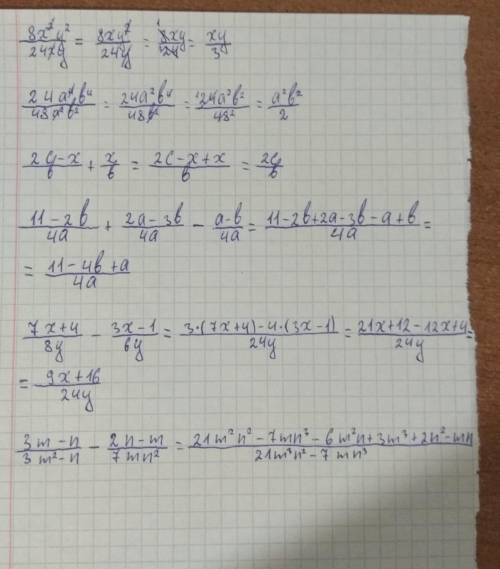 8x²y²/24xy = 8xy²/24y = 8xy/24 = xy/3
24a⁴b⁴/48a²b² = 24a²b⁴/48b² = 24a²b²/48² = a²b²/2
2c-x/b + x/b = 2c-x+x/b = 2c/b
11-2b/4a + 2a-3b/4a - a-b/4a = 11-2b+2a-3b-a+b/4a =
= 11-4b+a/4a
7x+4/8y - 3x-1/6y = 3·(7x+4)-4·(3x-1)/24y = 21x+12-12x+4/24y =
= 9x+16/24y
3m-n/3m²-n - 2n-m/7mn² = 21m²n²-7mn³-6m²n+3m³+2n²-mn/21m³n²-7mn³